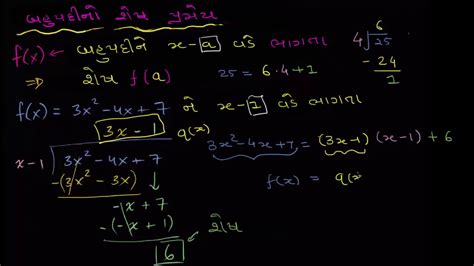 બહુપદીનો શેષ પ્રમેય
f(x) ← બહુપદીને x-a વડે ભાગતા
⇒ શેષ f(a)
25 = 6·4+1
6
4 25
- 24
1
f(x) = 3x² -4x + 7 ને x-1 વડે ભાગતા
3x - 1 q(x)
x-1 3x² -4x + 7
-(3x² - 3x)
-x + 7
-(-x + 1)
6 ← શેષ
3x² -4x +7 = (3x-1) (x-1) + 6
f(x) = q(x